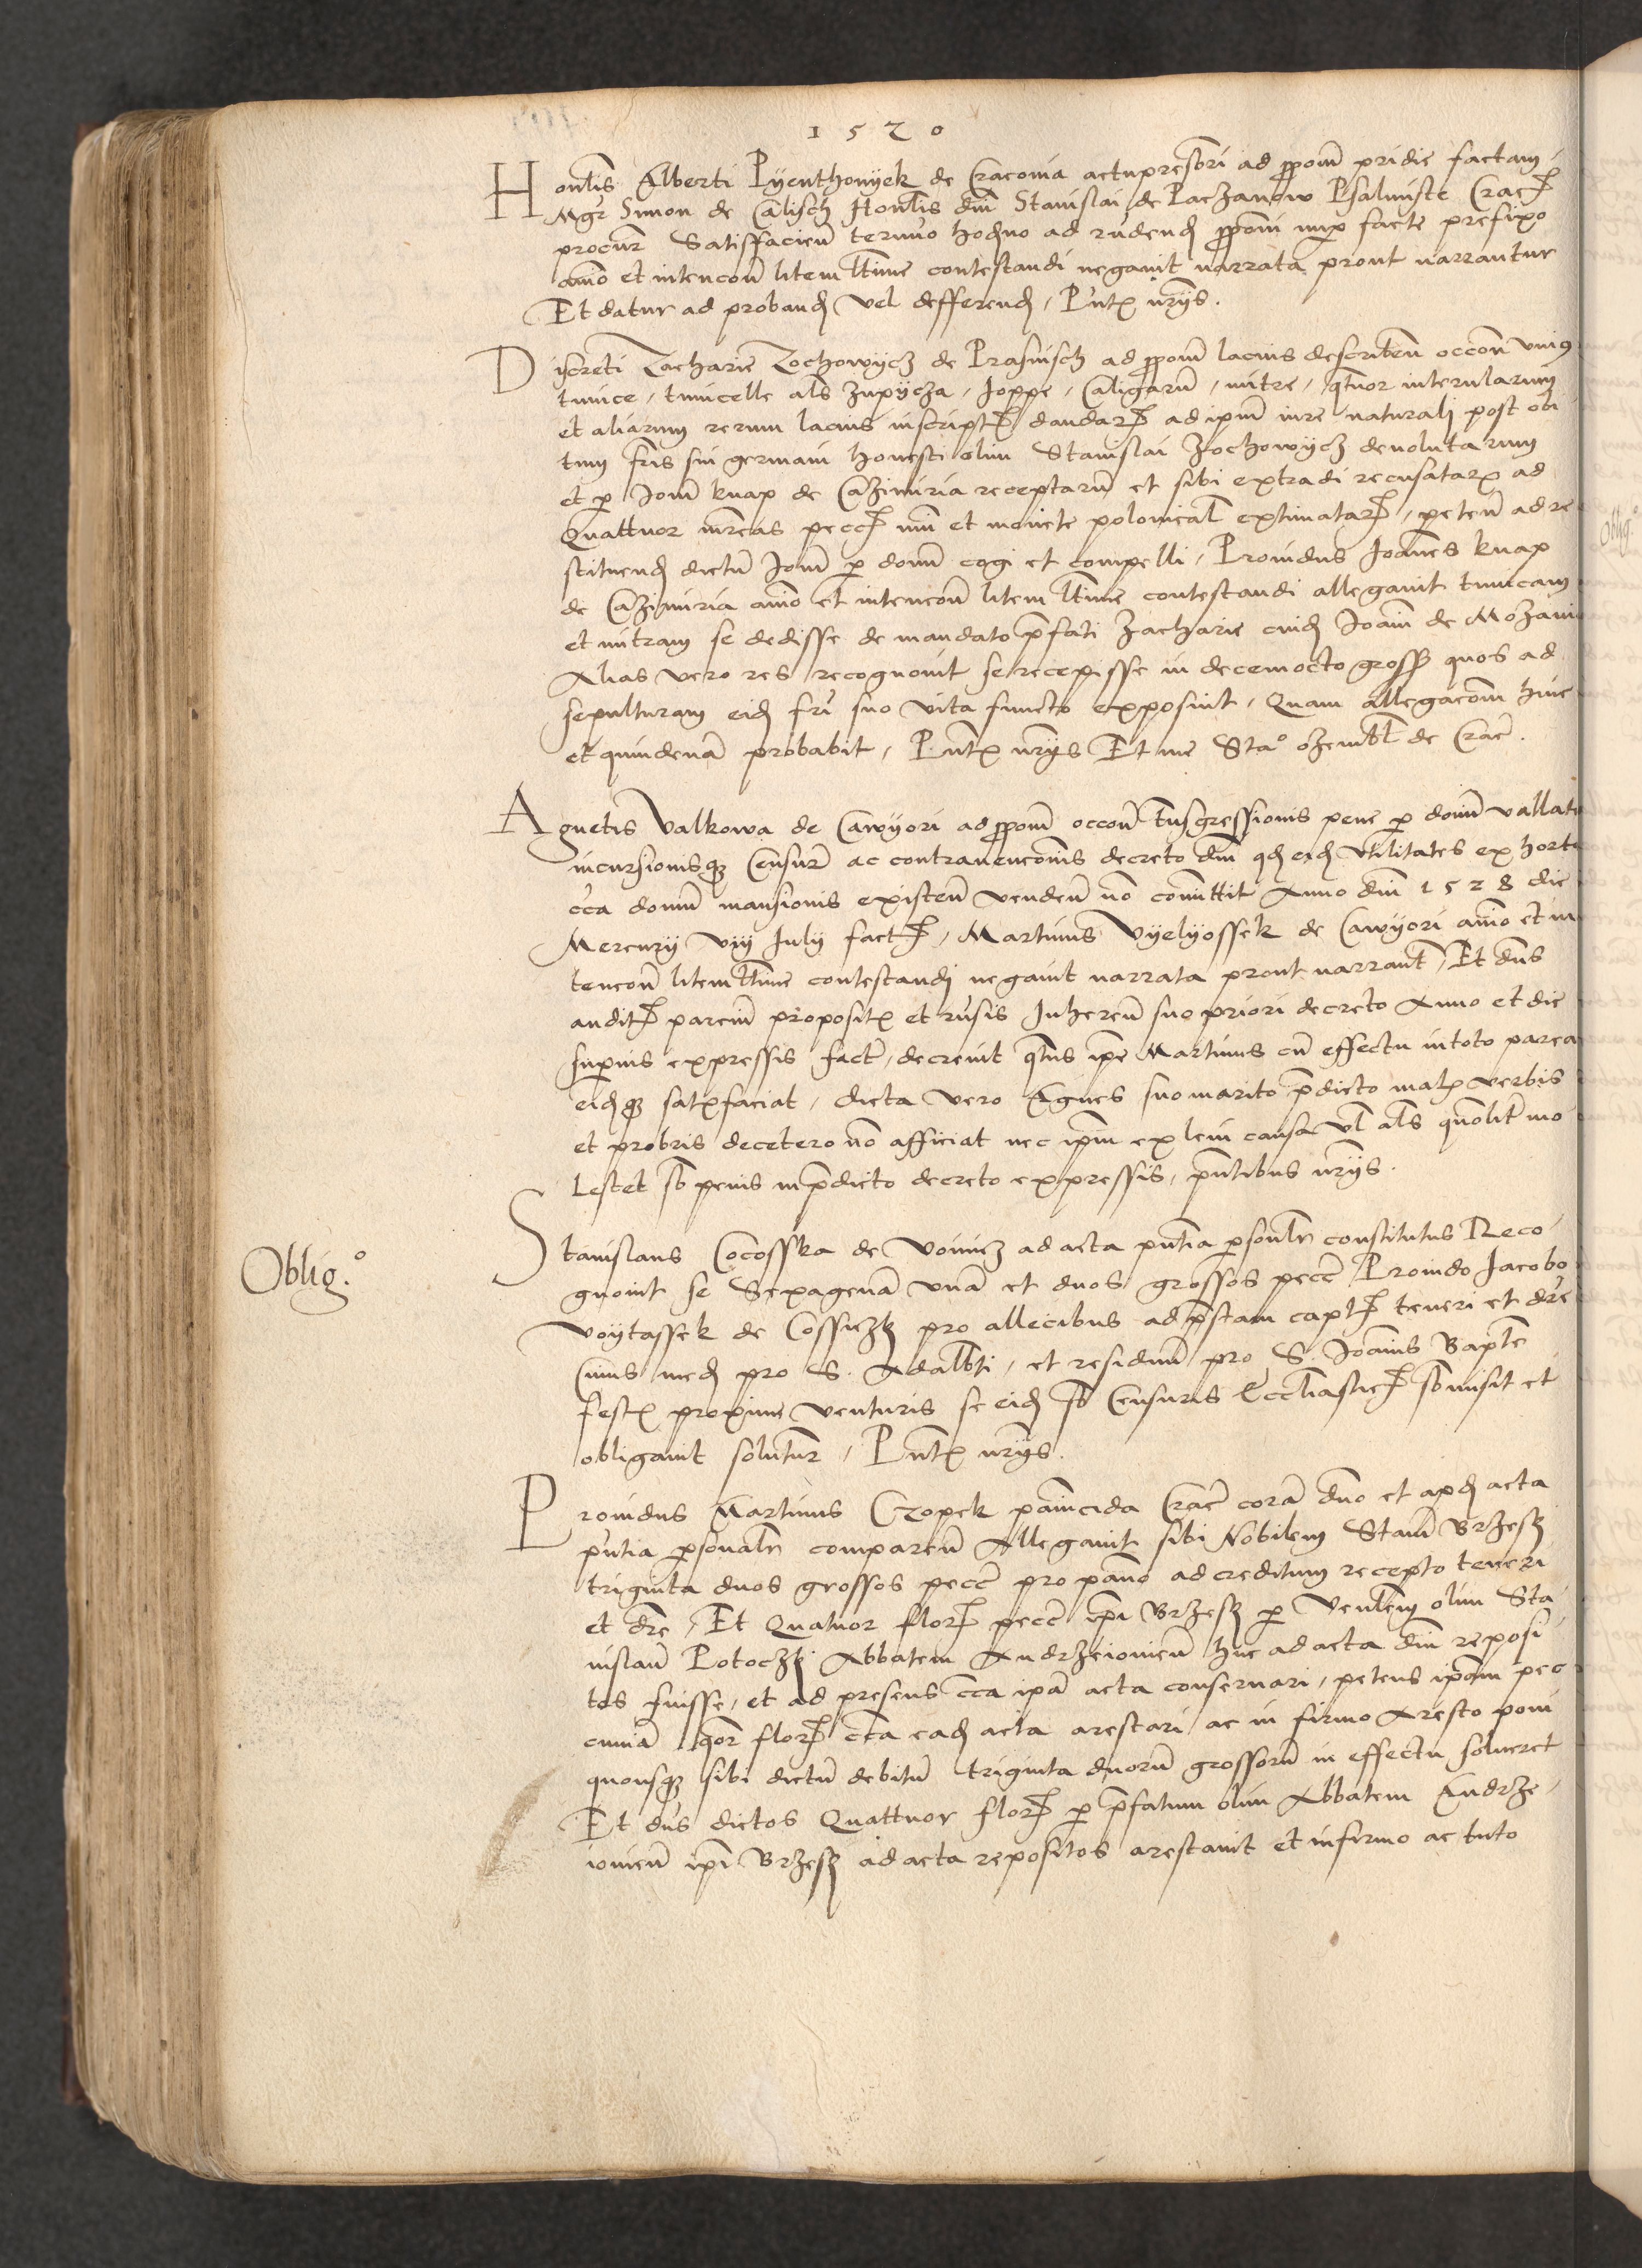 1520
Honestis Alberti Pyenthonyek de Cracovia actu presbri ad ppom pridie factam
Mgr Simon de Calisch Honlis dni Stanislai de Paczanow Psalmiste Crac
procur Satisfacien termino hodno ad rndend ppom nup facte prefixo
animo et intencon litem lttime contestandi negavit narrata prout narrantur
Et datur ad proband vel defferend, Pntx nrys.
Discreti Zacharie Zochowycz de Prasnisch ad ppom lacius describen occon unius
tunice, tunicelle als zupycza, Joppe, Caligarum, mitre, qtuor interularum
et aliarum rerum lacius inscript dandar ad ipm iure naturali post obi
tum fris sui germani honesti olim Stanislai Zochowycz devolutarum
et p Joan knap de Cazimiria receptarum et sibi extradi recusatarx ad
Quattuor mrcas pecc nui et monete polonical extimatar, peten ad re
stituend dictum Joan p domi cogi et compelli, Providus Joannes knap
de Cazimiria aio et intencon litem lttime contestandi allegavit tunicam
et mitram se dedisse de mandato pfati Zacharie cuid Joanni de Mozani
Alias vero res recognovit se recepisse in decemocto gross quos ad
sepulturam eid fri suo vita functo exposuit, Quam allegacom hinc
et quindenam probabit, Pntx nrys Et me Sta° ozembl de Crac.
Agnetis Valkowa de Cawyori ad ppom occon tnsgressionis pene p domi vallate
incursionisq Censur ac contravencionis decreto dni qd eid utilitates ex horto
cca domi mansionis existen venden no comittit Anno dni 1528 die
Mercury viij July fact, Martinus Vyelyossek de Cawyori aio et in
tencon litem lttime contestandi negavit narrata prout narrant, Et dns
audit parcium propositx et rnsis Inheren suo priori decreto Anno et die
superius expressis fact, decrevit qtus ipe Martinus cum effectu in toto parea
eidq satxfaciat, dicta vero Agnes suo marito pdicto malx verbis
et probris decetero no afficiat nec ipm ex levi causa vl als quovlt mo
lestet sb penis in pdicto decreto expressis, pntibus nrys.
Oblig.°
Stanislaus Cocosska de Voinicz ad acta pntia psonlr constitutus Reco
gnovit se Sexagenam unam et duos grossos pecc Provido Jacobo
Voytassek de Cossiczky pro allecibus ad pstam capt teneri et dre
Cuius med pro S. Adalbti, et residuum pro S. Joannis Bapte
festx proxime venturis se eid sb Censuris Ecclesiastic sbmisit et
obligavit solutur, Pntx nrys.
Providus Martinus Czopek pannicida Crac coram dno et apd acta
pntia psonalr comparen Allegavit sibi Nobilem Stanm Brzesky
triginta duos grossos pecc pro panno ad creditum recepto teneri
et dre, Et Quatuor flor pecc ipi Brzesky p Venlem olim Sta
nislaum Potoczky Abbatem Andrzeiovien huc ad acta dni reposi
tos fuisse, et ad presens cca ipa acta conservari, petens ipam pec
cuniam qtuor flor cca ead acta arestari ac in firmo Aresto poni
quousq sibi dictum debitum triginta duorum grossorum in effectu solveret
Et dns dictos Quattuor flor p pfatum olim Abbatem Andrze
iovien ipi Brzesky ad acta repositos arestavit et in firmo ac tuto